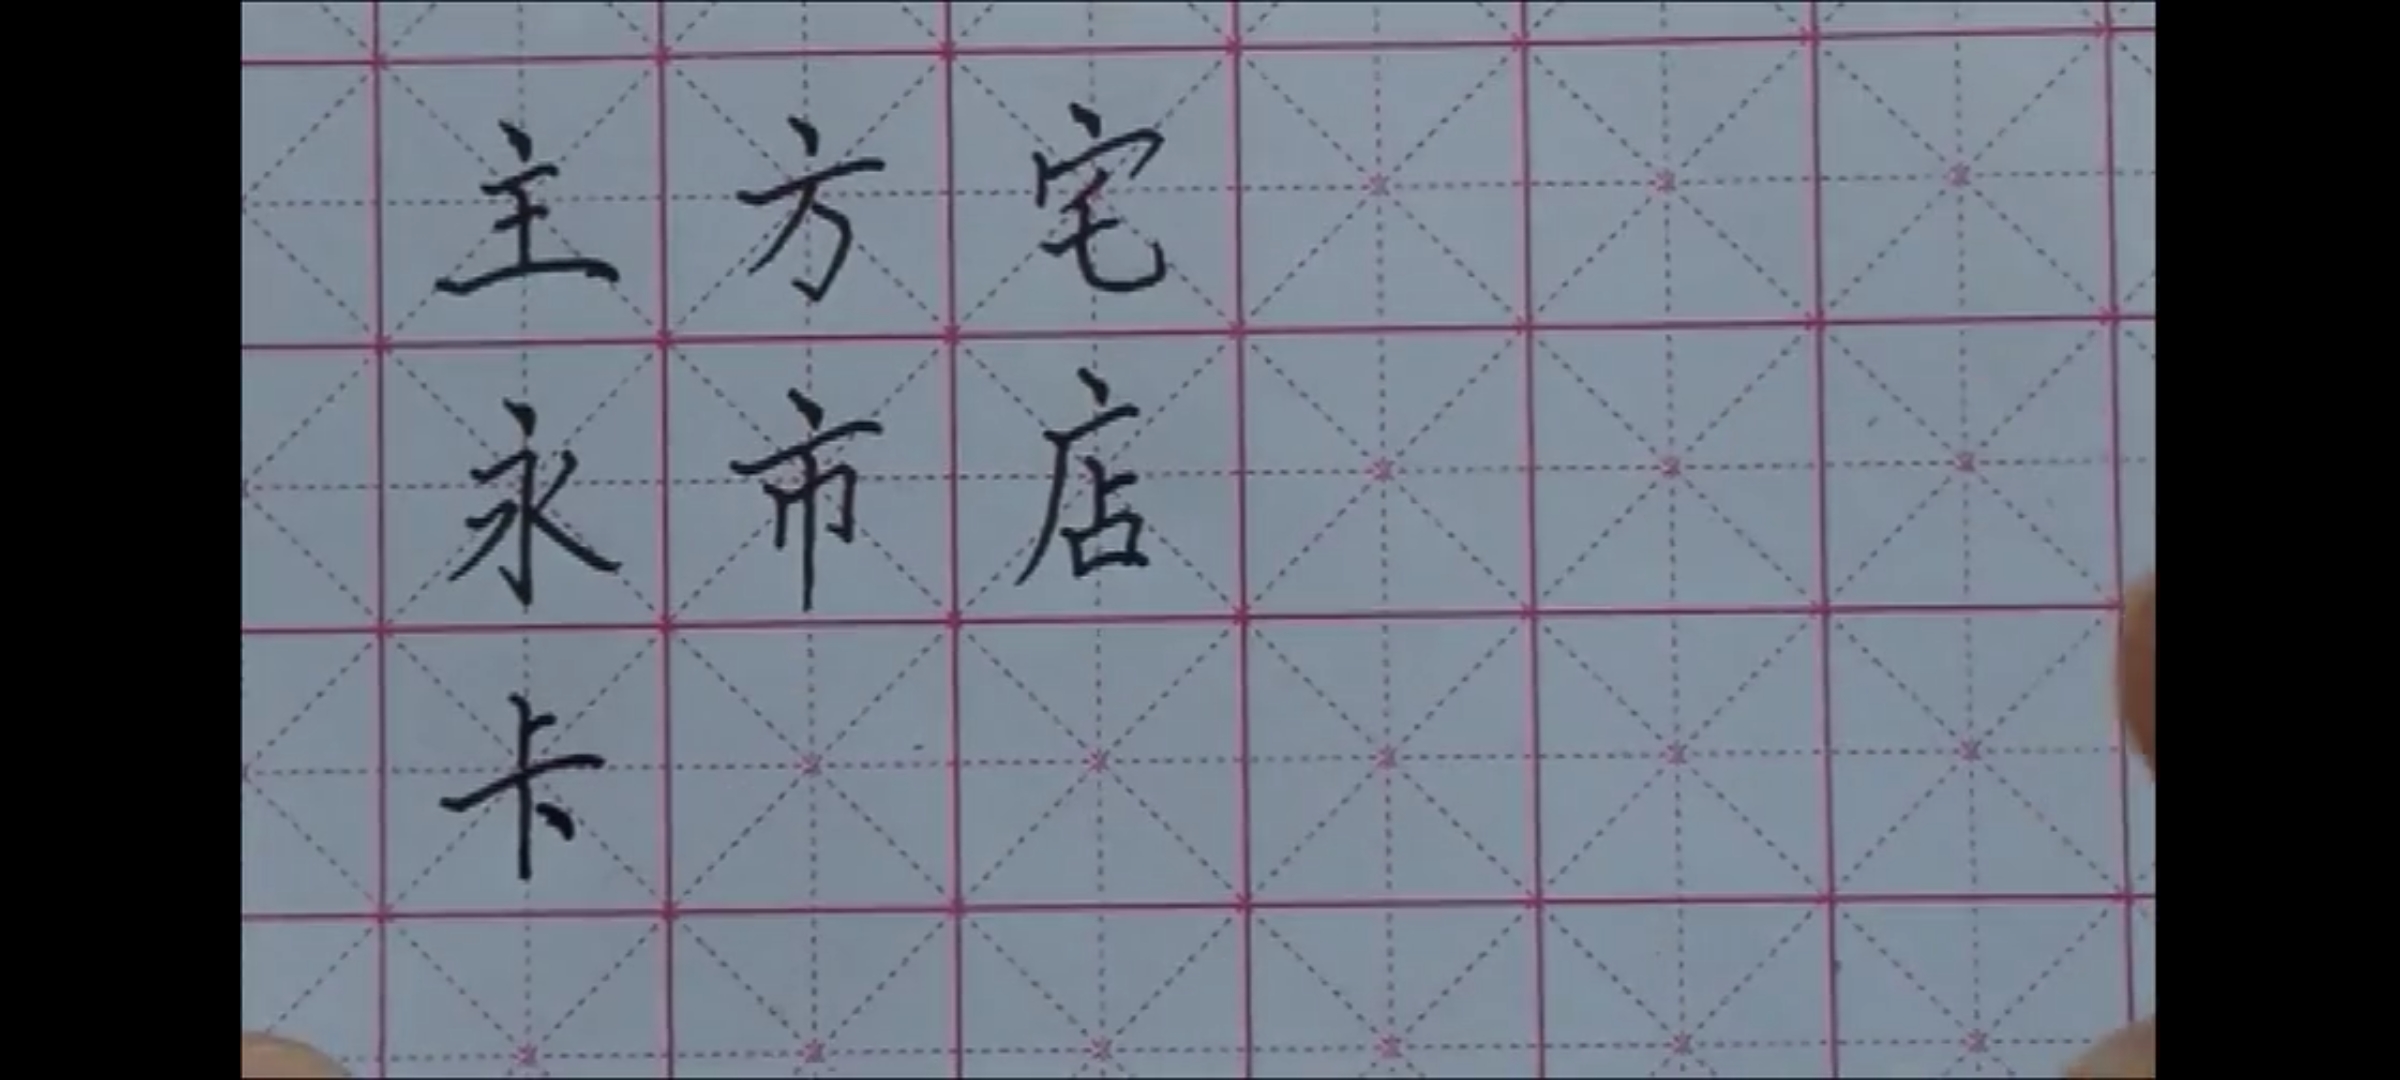 主方宅
永市店
卡